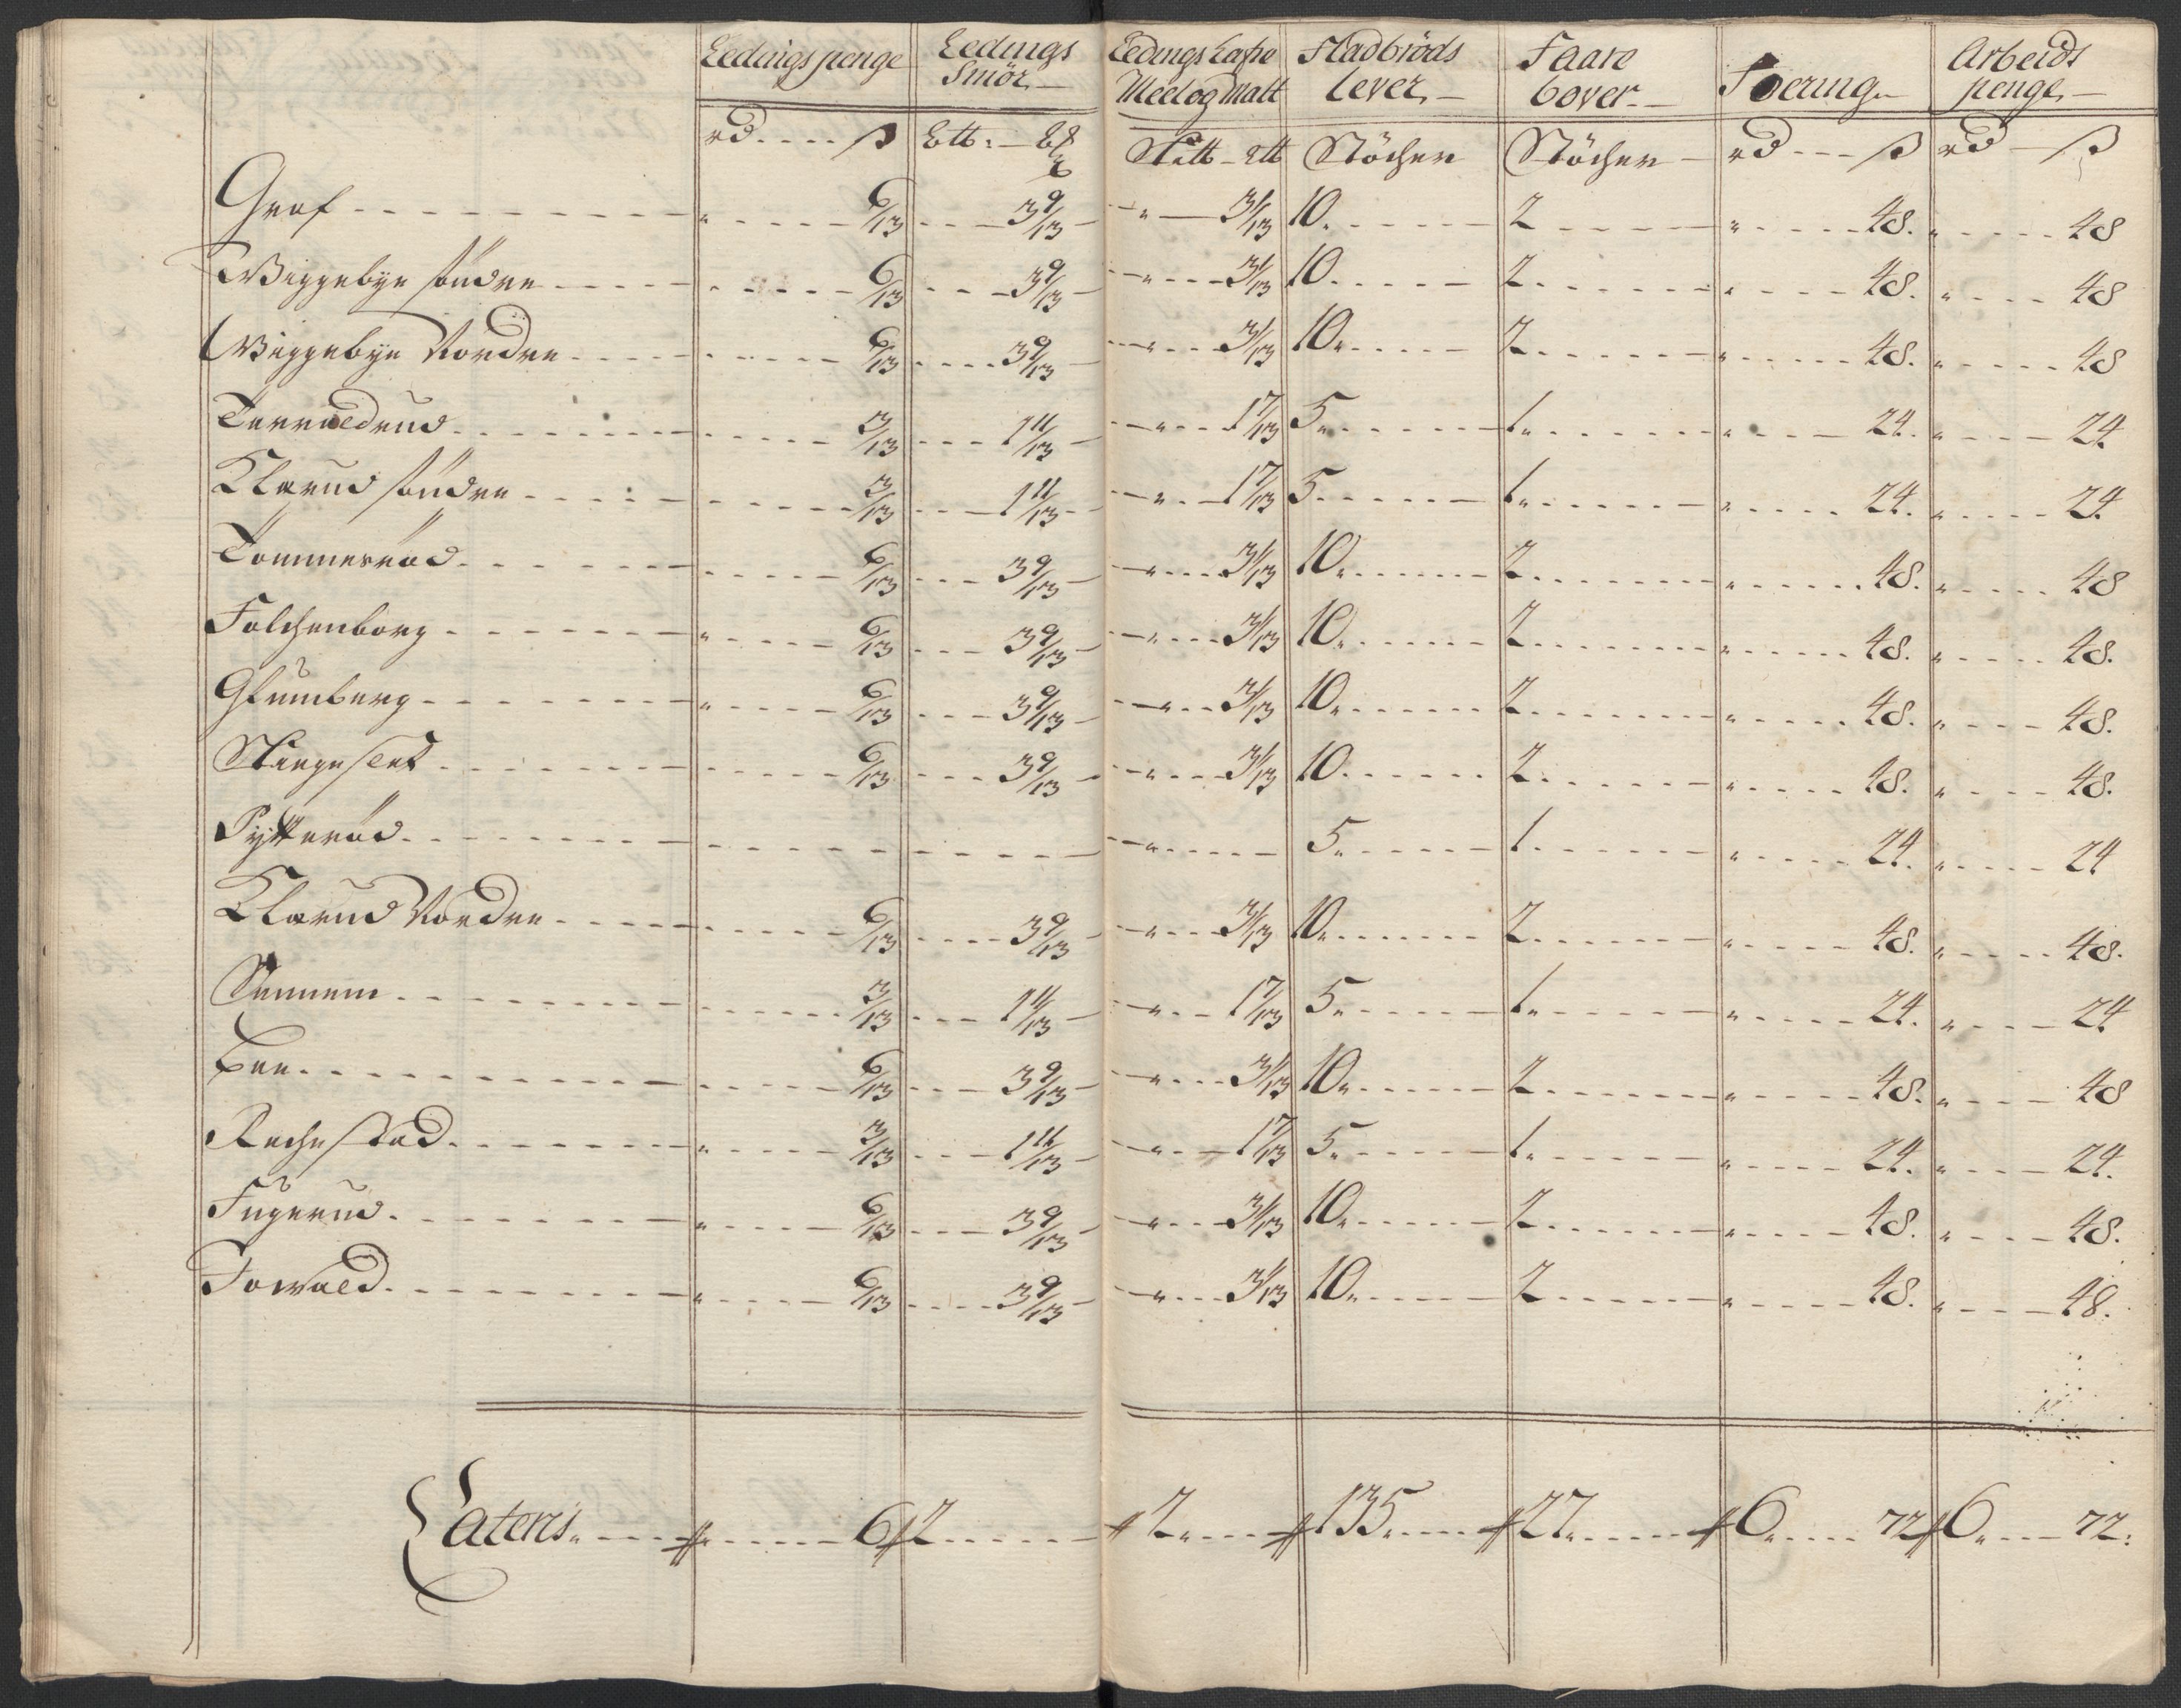 Ledingspenge | Ledings Smör | Ledings Lafse Meel og Malt | Fladbröds Lever | Faare Bover | Foering | Arbeids penge
rd ß | Ltt: | Sk tt - Ltt | Stöcher | Stöcher | rd ß | rd ß
Graf | 6/13 | 3 9/13 | 3 1/13 | 10 | 2 | 48 | 48
Wiggebye söndre | 6/13 | 3 9/13 | 3 1/13 | 10 | 2 | 48 | 48
Wiggebye Nordre | 6/13 | 3 9/13 | 3 1/13 | 10 | 2 | 48 | 48
Terraldrud | 3/13 | 1 11/13 | 1 7/13 | 5 | 1 | 24 | 24
Klarud söndre | 3/13 | 1 11/13 | 1 7/13 | 5 | 1 | 24 | 24
Tommeröd | 6/13 | 3 9/13 | 3 1/13 | 10 | 2 | 48 | 48
Folchenborg | 6/13 | 3 9/13 | 3 1/13 | 10 | 2 | 48 | 48
Glumberg | 6/13 | 3 9/13 | 3 1/13 | 10 | 2 | 48 | 48
Stingeslet | 6/13 | 3 9/13 | 3 1/13 | 10 | 2 | 48 | 48
Pytteröd | 5 | 1 | 24 | 24
Klarud Nordre | 6/13 | 3 9/13 | 3 1/13 | 10 | 2 | 48 | 48
Sennem | 3/13 | 1 11/13 | 1 7/13 | 5 | 1 | 24 | 24
Lee | 6/13 | 3 9/13 | 3 1/13 | 10 | 2 | 48 | 48
Rachestad | 3/13 | 1 11/13 | 1 7/13 | 5 | 1 | 24 | 24
Fugerud | 6/13 | 3 9/13 | 3 1/13 | 10 | 2 | 48 | 48
Towald | 6/13 | 3 9/13 | 3 1/13 | 10 | 2 | 48 | 48
Lateris | 6 | 2 | 2 | 135 | 27 | 6 72 | 6 72